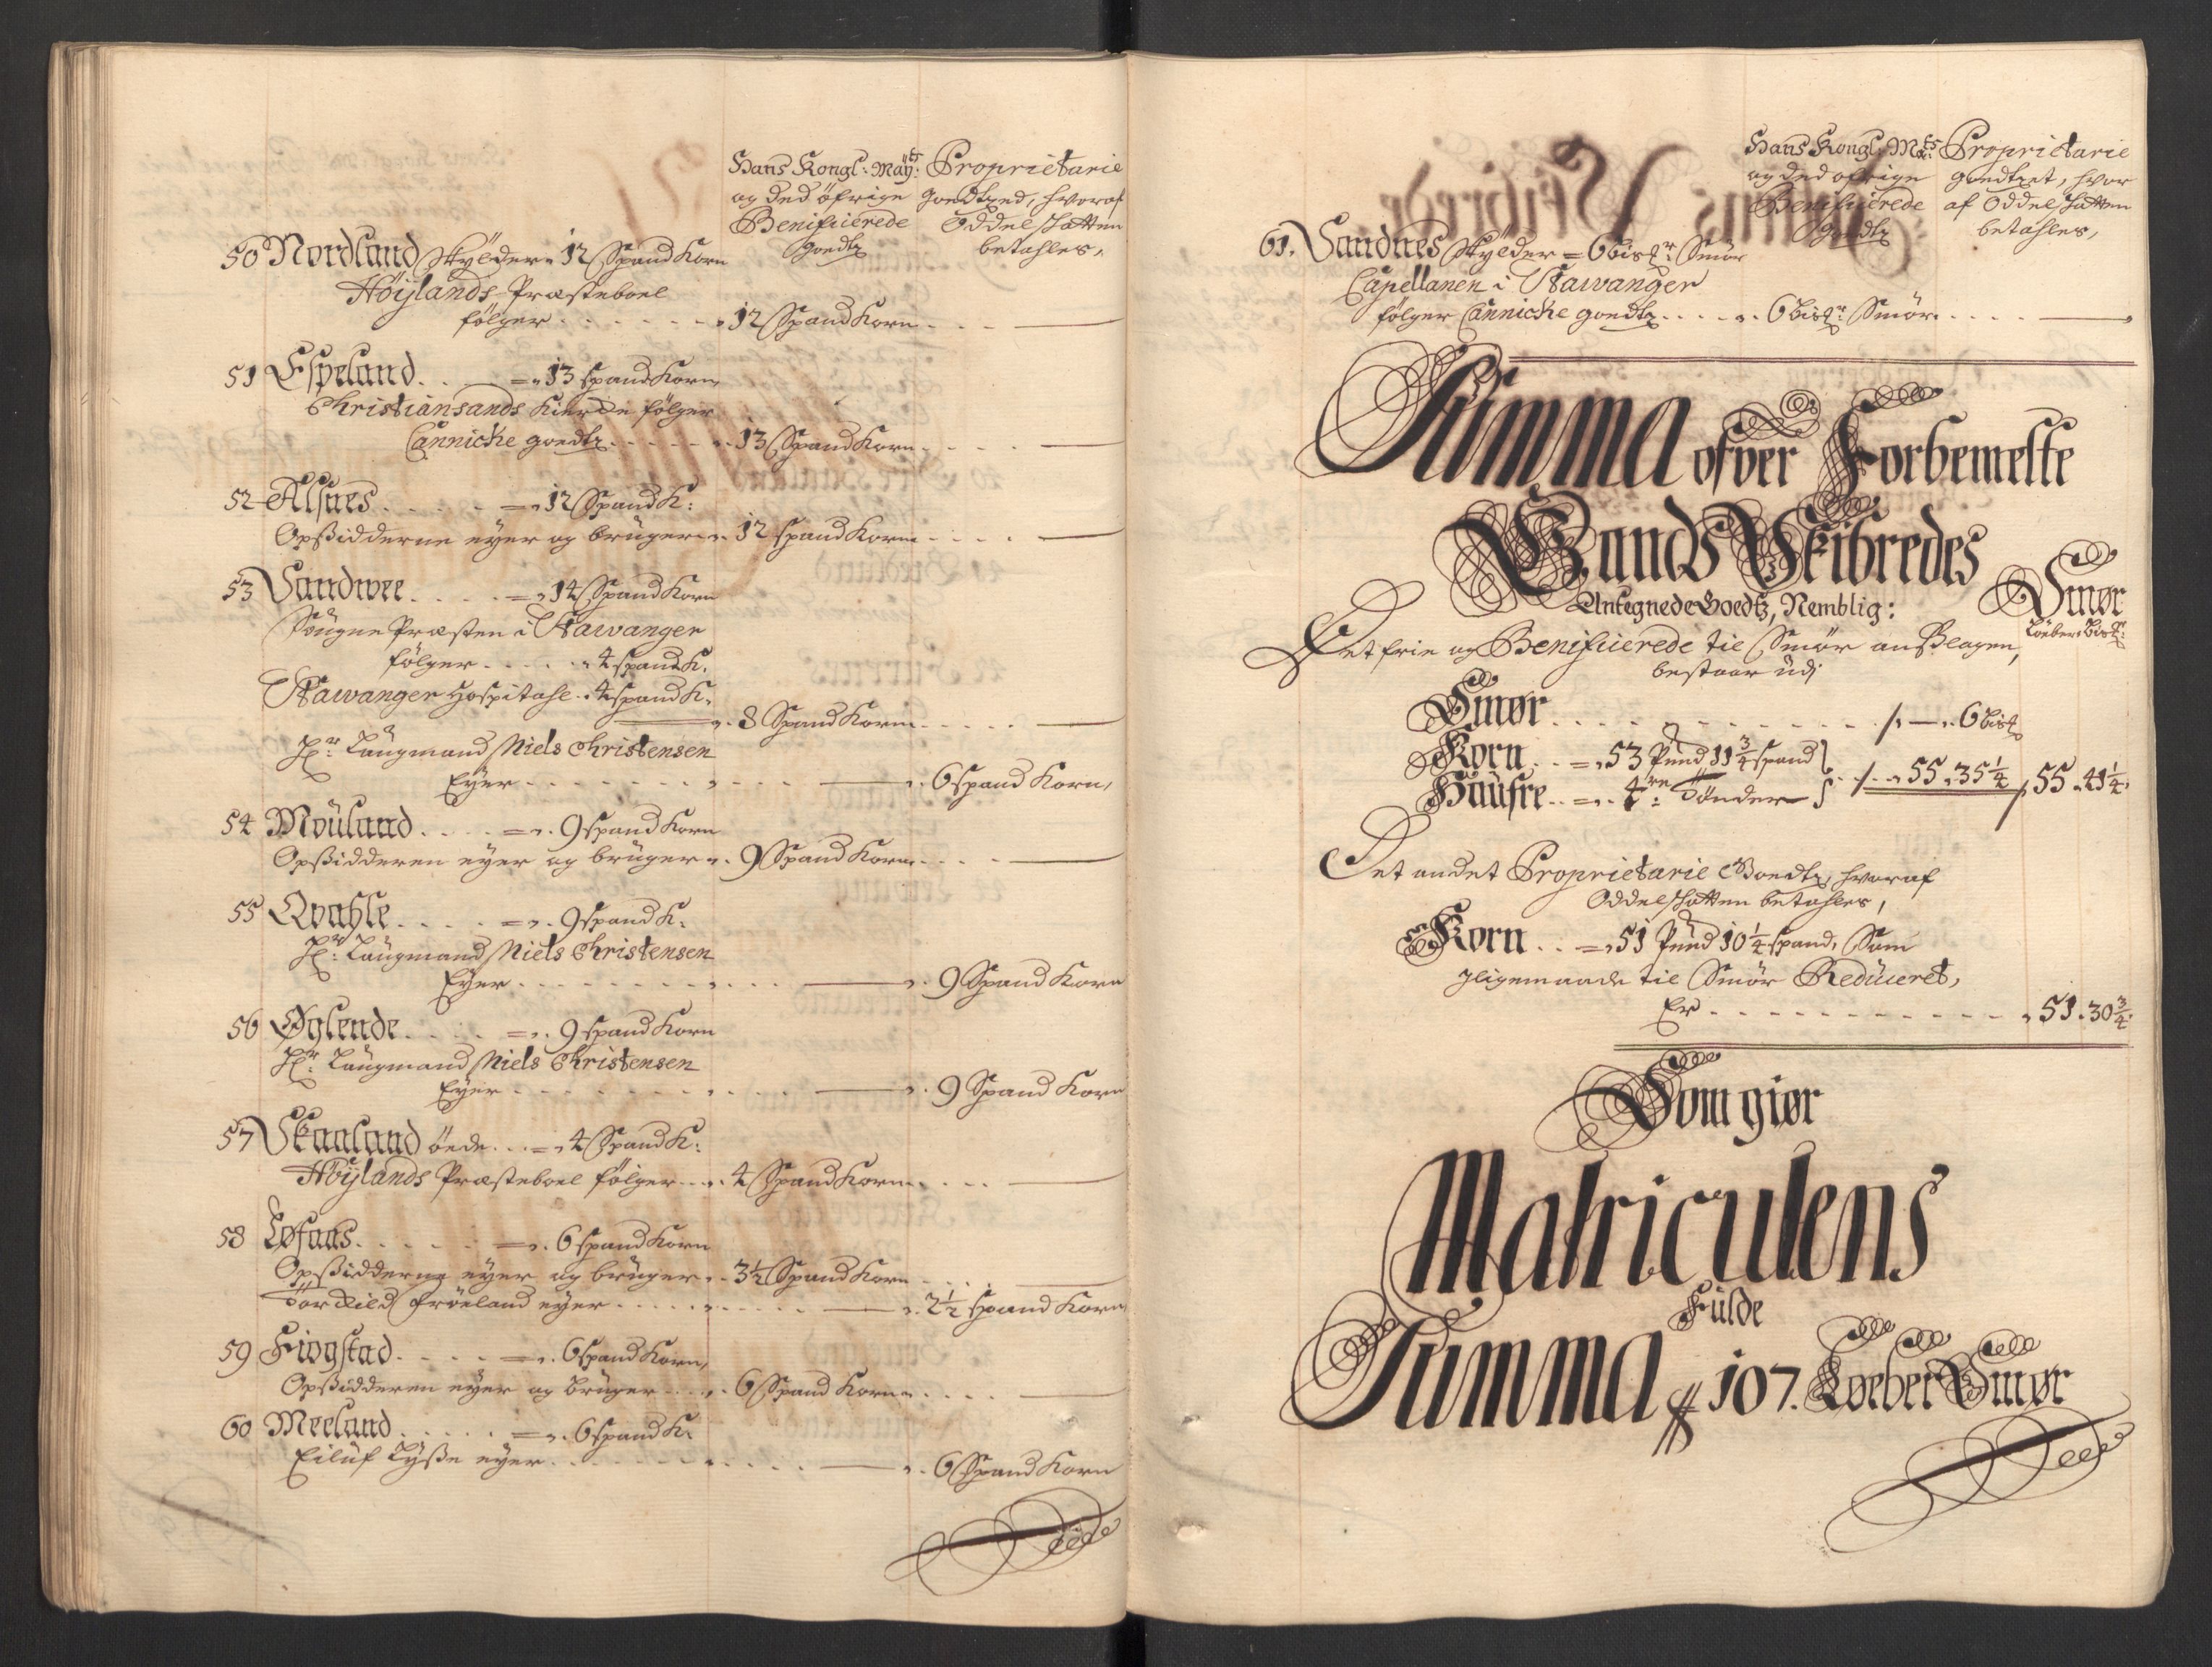 Hans Kongl: Mayts:
og ded öfrige
Benificierede
goedtz
Proprietarie
goedtzed, hvoraf
Oddel skatten
betahles,
50 Nordland skylder = 12 Spand Korn
Höijlands Præsteboel
følger . . . . . . 12 Spand Korn . . .
51 Espeland . . . = 13 spand Korn
Christiansands Kircke følger
Cannicke goedtz . . . . . . 13 Spand Korn . . .
52 Alsnes . . . . = 12 Spand K:
Opsidderne eyer og brüger . . 12 spand Korn . . . .
53 Sandwee . . . . = 14 Spand Korn
Sougne Præsten i Stawanger
følger . . . . . 4 spand K.
Stawanger Hospitahl . 4 spand K.
8 Spand Korn . . . . .
Hr: Laugmand Niels Christensen
Eyer . . . . . . . . . . 6 Spand Korn,
54 Mouland . . . . = 9 spand Korn
Opsidderen eyer og brüger . . 9 Spand Korn . . . .
55 Qvahle . . . . = 9 spand K:
Hr: Laugmand Niels Christensen
Eyer . . . . . . . . . . 9 Spand Korn
56 Øglende . . . . = 9 spand Korn
Hr: Laugmand Niels Christensen
Eyer . . . . . . . . . . 9 Spand Korn
57 Skaaland öede . . = 4 Spand K:
Höijlands Præsteboel følger . . . 4 Spand Korn . . . .
58 Lofaas . . . . . = 6 spand Korn
Opsidderne eyer og brüger . . 3½ Spand Korn . . .
Torkild Fröeland eyer . . . . . . . . . . 2½ spand Korn
59 Fiogstad . . . . = 6 spand Korn,
Opsidderen eyer og brüger . . . 6 Spand Korn . . . .
60 Meeland . . . . . = 6 spand K.
Eiluf Lysse eyer . . . . . . . . . . 6 Spand Korn
Hans Kongl: Mayts:
og ded öfrige
Benificierede
goedtz
Proprietarie
goedtzet, hvor
af Oddel skatten
betahles,
61. Sandnes skylder = 6 bistr: Smör
Capellanen i Stawanger
følger Cannicke goedtz . . . . . 6 bistr: Smör . . . . .
Summa ofver Forbemelte
Gands Skibredes
Antegnede Goedtz, Nemblig:
Smør
Løeber Bistr:
Det frie og Benificierede til Smör anslagen,
bestaar udj
Smør . . . . . . . . . . . . . /. — . 6 bistr
Korn . . = 53 Pund 11¾ spand
Haufre . . = . 4re: Tönder } . /. . 55 . 35¼ / 55 . 41¼.
Det andet Proprietarie Goedtz, hvoraf
Oddelskatten betahles,
Korn . . = 51 Pund 10¼ spand, Som
ligemaade til Smör Reduceret,
Er . . . . . . . . . . . . 51 . 30¾.
Som giør
Matriculens
Fulde
Summa # 107. Løeber Smør